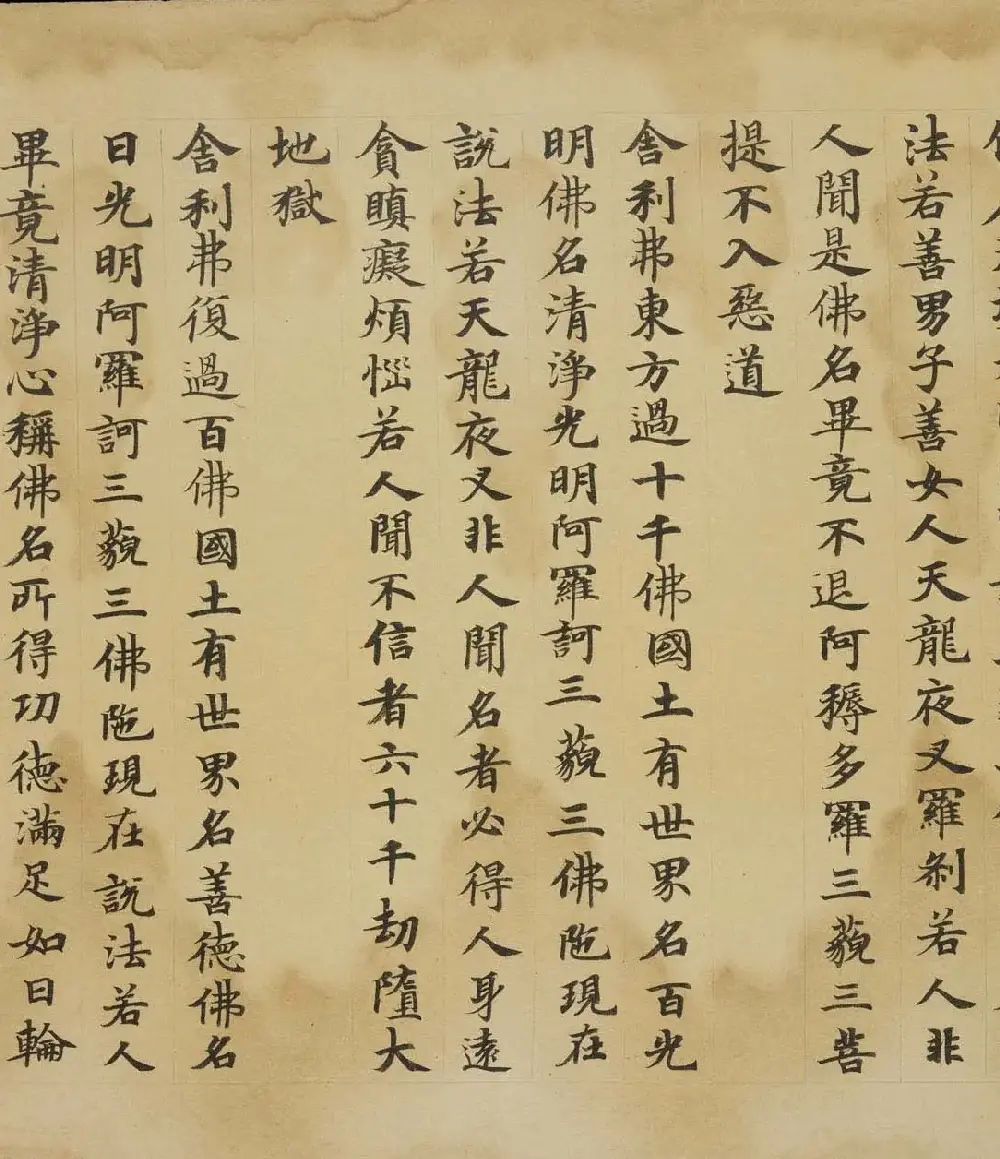 法若善男子善女人天龍夜叉羅剎若人非
人聞是佛名畢竟不退阿耨多羅三藐三菩
提不入惡道
舍利弗東方過十千佛國土有世界名百光
明佛名清淨光明阿羅訶三藐三佛陁現在
說法若天龍夜叉非人聞名者必得人身遠
貪瞋癡煩惱若人聞不信者六十千劫墮大
地獄
舍利弗復過百佛國土有世界名善德佛名
日光明阿羅訶三藐三佛陁現在說法若人
畢竟清淨心稱佛名所得功德滿足如日輪